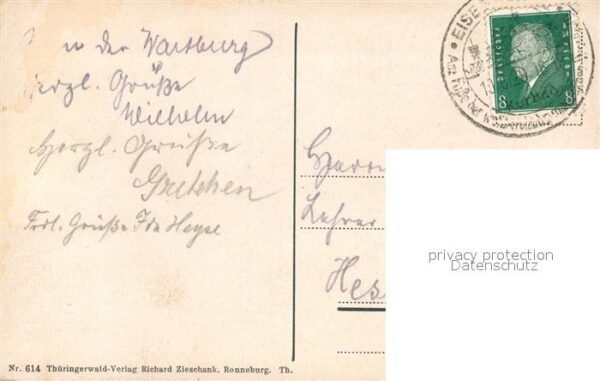 n der Wartburg
Herzl. Grüße
Wilhelm
Herzl. Grüße
Gretchen
Frdl. Grüße Ida Heyse
Herrn
Lehrer
Hes
EISE
Am Fuße der Wartburg
DEUTSCHES REICH
8 8
privacy protection
Datenschutz
Nr. 614 Thüringerwald-Verlag Richard Zieschank, Ronneburg. Th.